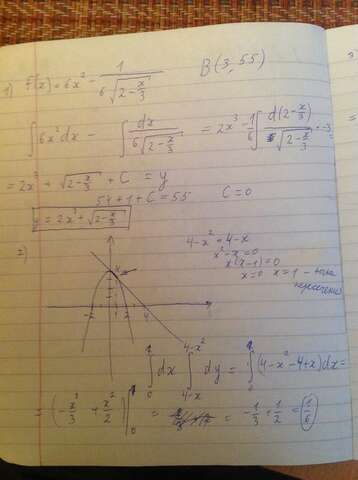 1) F(x) = 6x² - 1/(6√(2-x/3)) B(3,55)
∫6x²dx - ∫dx/(6√(2-x/3)) = 2x³ - 1/6 ∫d(2-x/3)/√(2-x/3) · -3 =
= 2x³ + √(2-x/3) + C = y
54+1+C = 55 C=0
y = 2x³ + √(2-x/3)
2)
4-x² = 4-x
x²-x=0
x(x-1)=0
x=0 x=1 -
пересечения
4
-2 1 2 4
∫₀¹ dx ∫₄₋ₓ^(4-x²) dy = ∫₀¹ (4-x²-4+x)dx =
= (-x³/3 + x²/2)|₀¹ = = -1/3 + 1/2 = 1/6